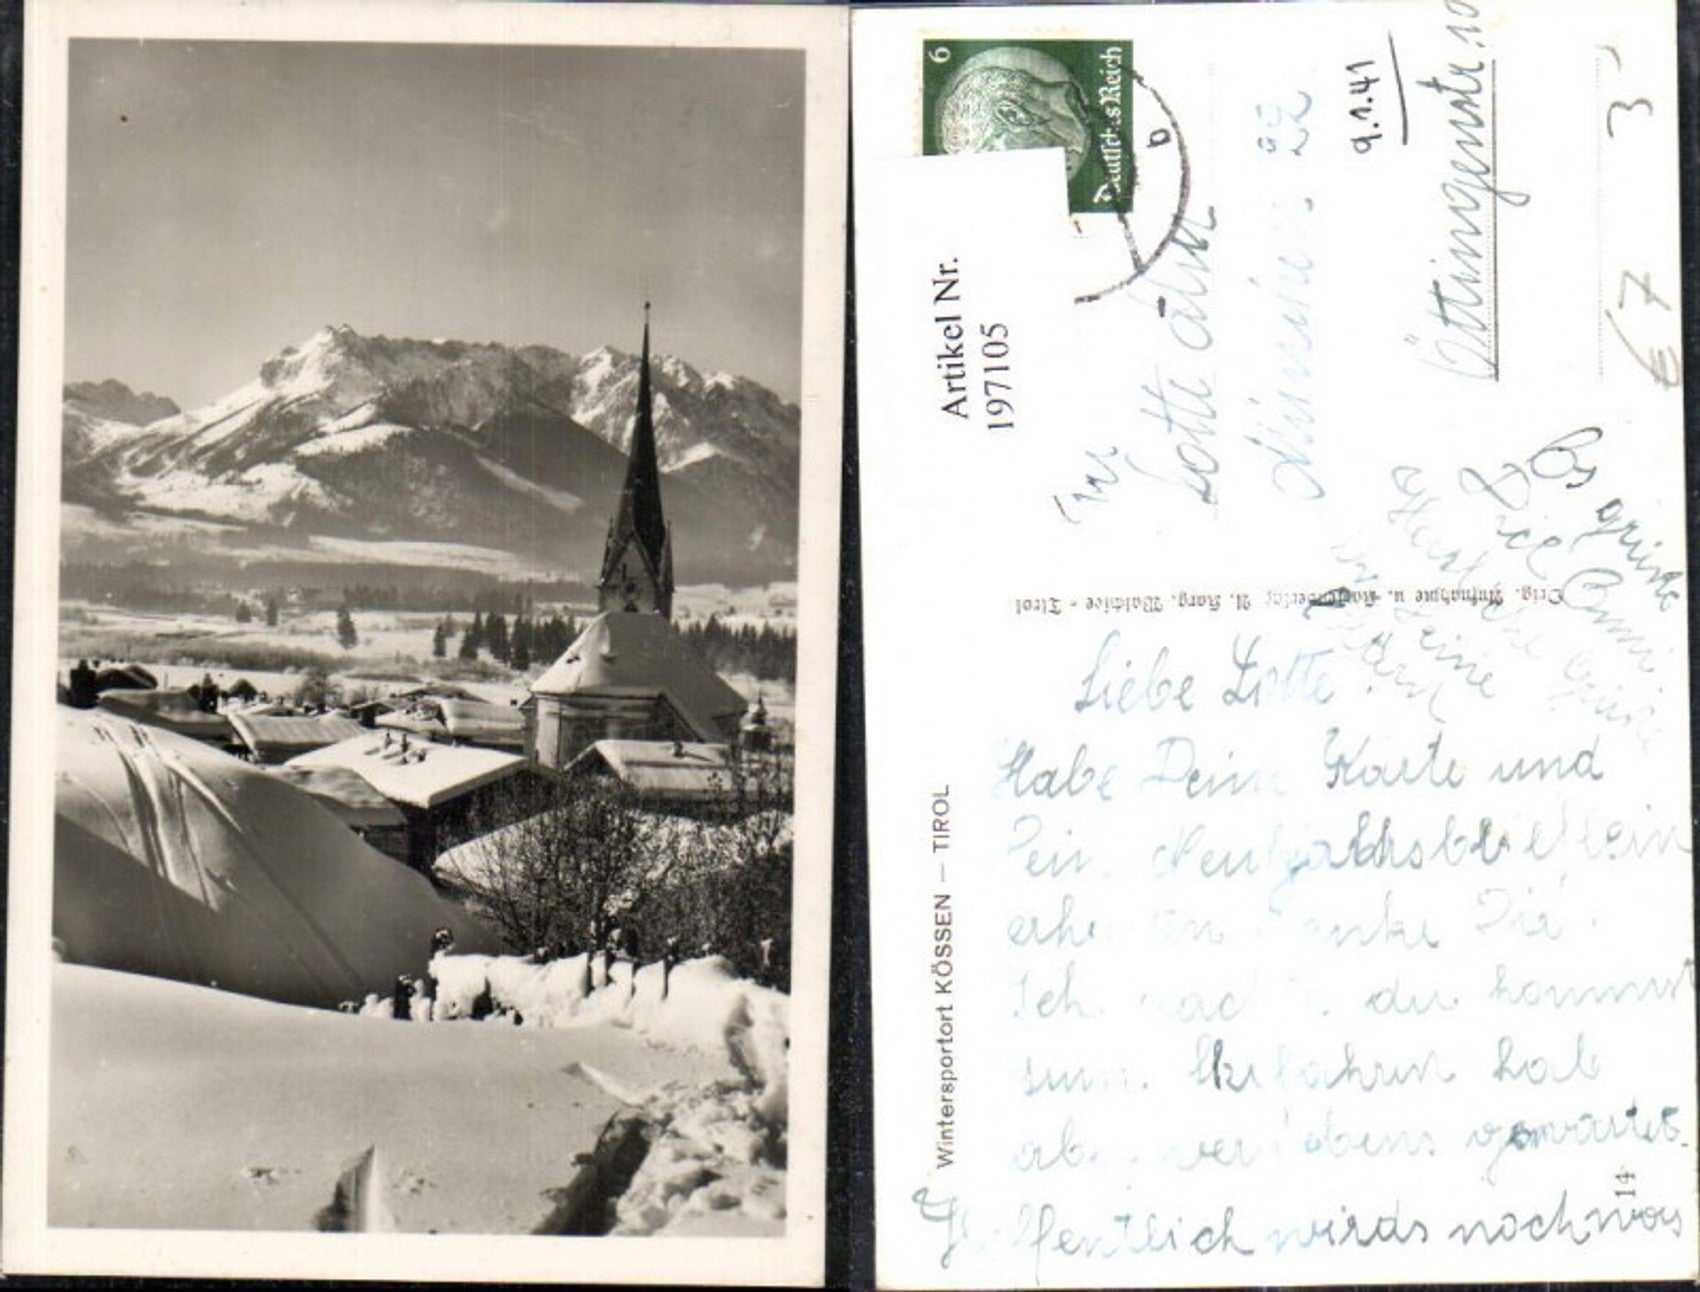 6
Deutsches Reich
b
Artikel Nr.
197105
9.1.41
Lotte
München 22
Öttingenstr. 10
3
€ 7
Wintersportort KÖSSEN — TIROL
Orig. Aufnahme u. Kartenverlag A. Karg, Walchsee - Tirol
14
Liebe Lotte
Habe Deine Karte und
Dein Neujahrsbrieflein
erhalten Danke Dir
Ich dachte du kommst
zum Skifahren hab
aber vergebens gewartet.
Hoffentlich wirds noch was
Es grüßt
Dich
Deine